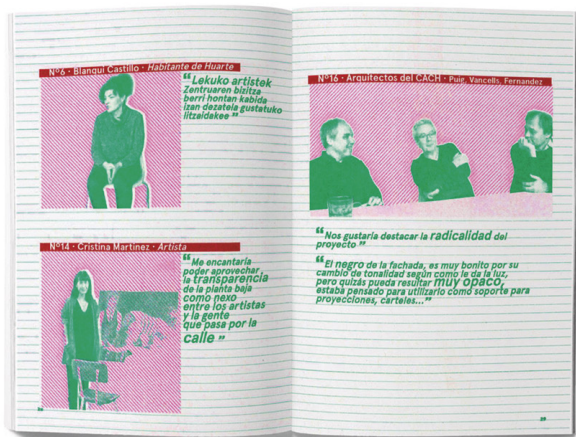 Nº6 · Blanqui Castillo · Habitante de Huarte
“Lekuko artistek
Zentruaren bizitza
berri hontan kabida
izan dezatela gustatuko
litzaidakee”
Nº14 · Cristina Martinez · Artista
“Me encantaría
poder aprovechar
la transparencia
de la planta baja
como nexo
entre los artistas
y la gente
que pasa por la
calle”
“
Nº16 · Arquitectos del CACH · Puig, Vancells, Fernandez
“Nos gustaría destacar la radicalidad del
proyecto”
“El negro de la fachada, es muy bonito por su
cambio de tonalidad según como le da la luz,
pero quizás pueda resultar muy opaco,
estaba pensado para utilizarlo como soporte para
proyecciones, carteles...”
”